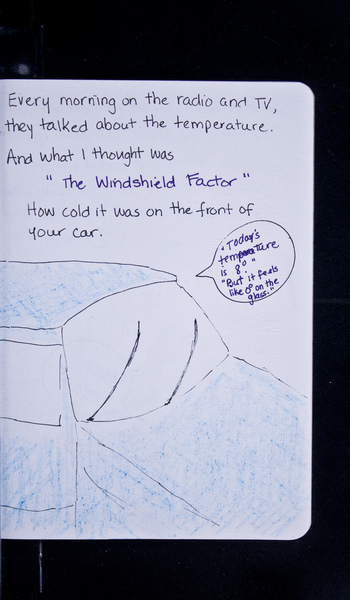 Every morning on the radio and TV,
they talked about the temperature.
And what I thought was
" The Windshield Factor "
How cold it was on the front of
your car.
"Today's
temperature
is 8°"
"But it feels
like 0° on the
glass."